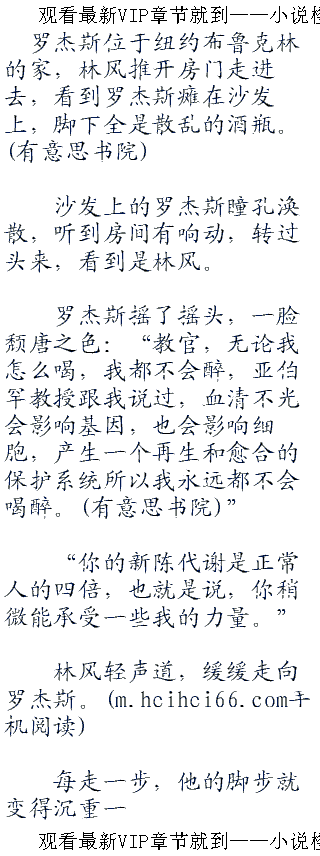 观看最新VIP章节就到——小说
罗杰斯位于纽约布鲁克林
的家，林风推开房门走进
去，看到罗杰斯瘫在沙发
上，脚下全是散乱的酒瓶。
(有意思书院)
沙发上的罗杰斯瞳孔涣
散，听到房间有响动，转过
头来，看到是林风。
罗杰斯摇了摇头，一脸
颓唐之色：“教官，无论我
怎么喝，我都不会醉，亚伯
罕教授跟我说过，血清不光
会影响基因，也会影响细
胞，产生一个再生和愈合的
保护系统所以我永远都不会
喝醉。(有意思书院)”
“你的新陈代谢是正常
人的四倍，也就是说，你稍
微能承受一些我的力量。”
林风轻声道，缓缓走向
罗杰斯。(m.hcihci66.com手
机阅读)
每走一步，他的脚步就
变得沉重一
观看最新VIP章节就到——小说